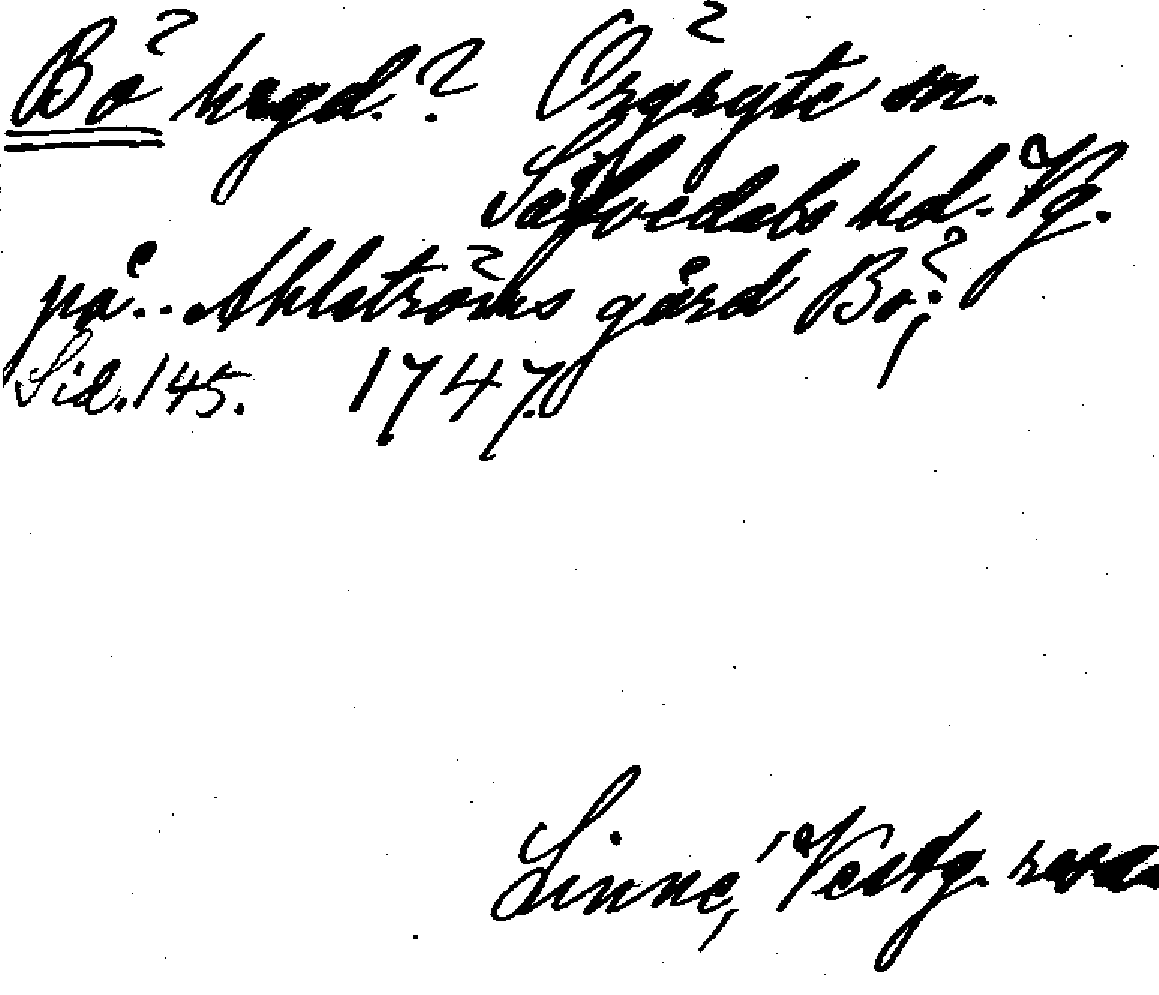 Bö hrgd.? Örgryte sn.
Säfvedals hd. Vg.
på.. Ahlströms gård Bö,
Sid. 145. 1747.
Linne, Vestg. resa